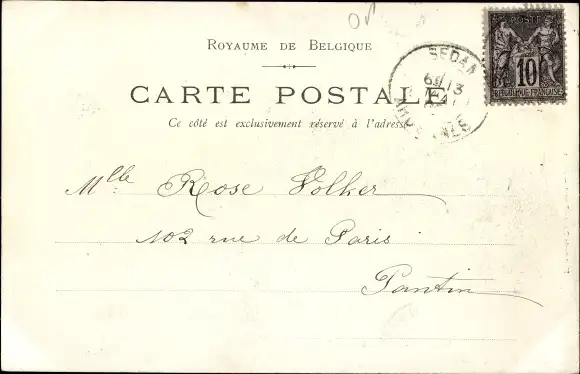 ROYAUME DE BELGIQUE
CARTE POSTALE
Ce côté est exclusivement réservé à l'adresse
SEDAN
POSTE
10
REPUBLIQUE FRANÇAISE
Mlle Rose Volher
102 rue de Paris
Pantin